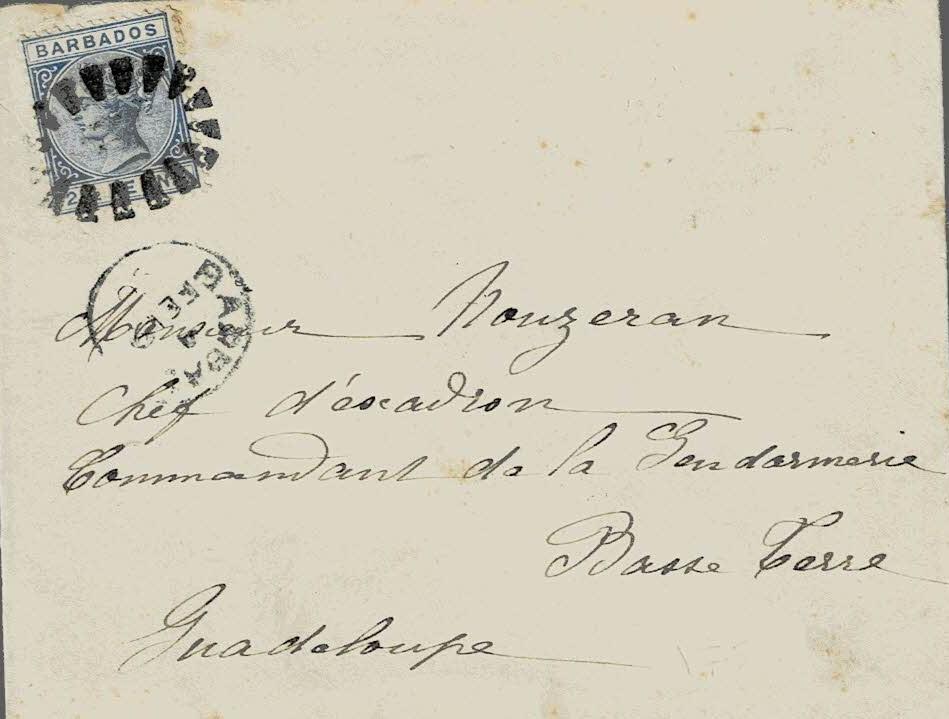 BARBADOS
BARBA
FE
Monsieur Nouzeran
Chef d'éscadron
Commandant de la Gendarmerie
Basse Terre
Guadeloupe